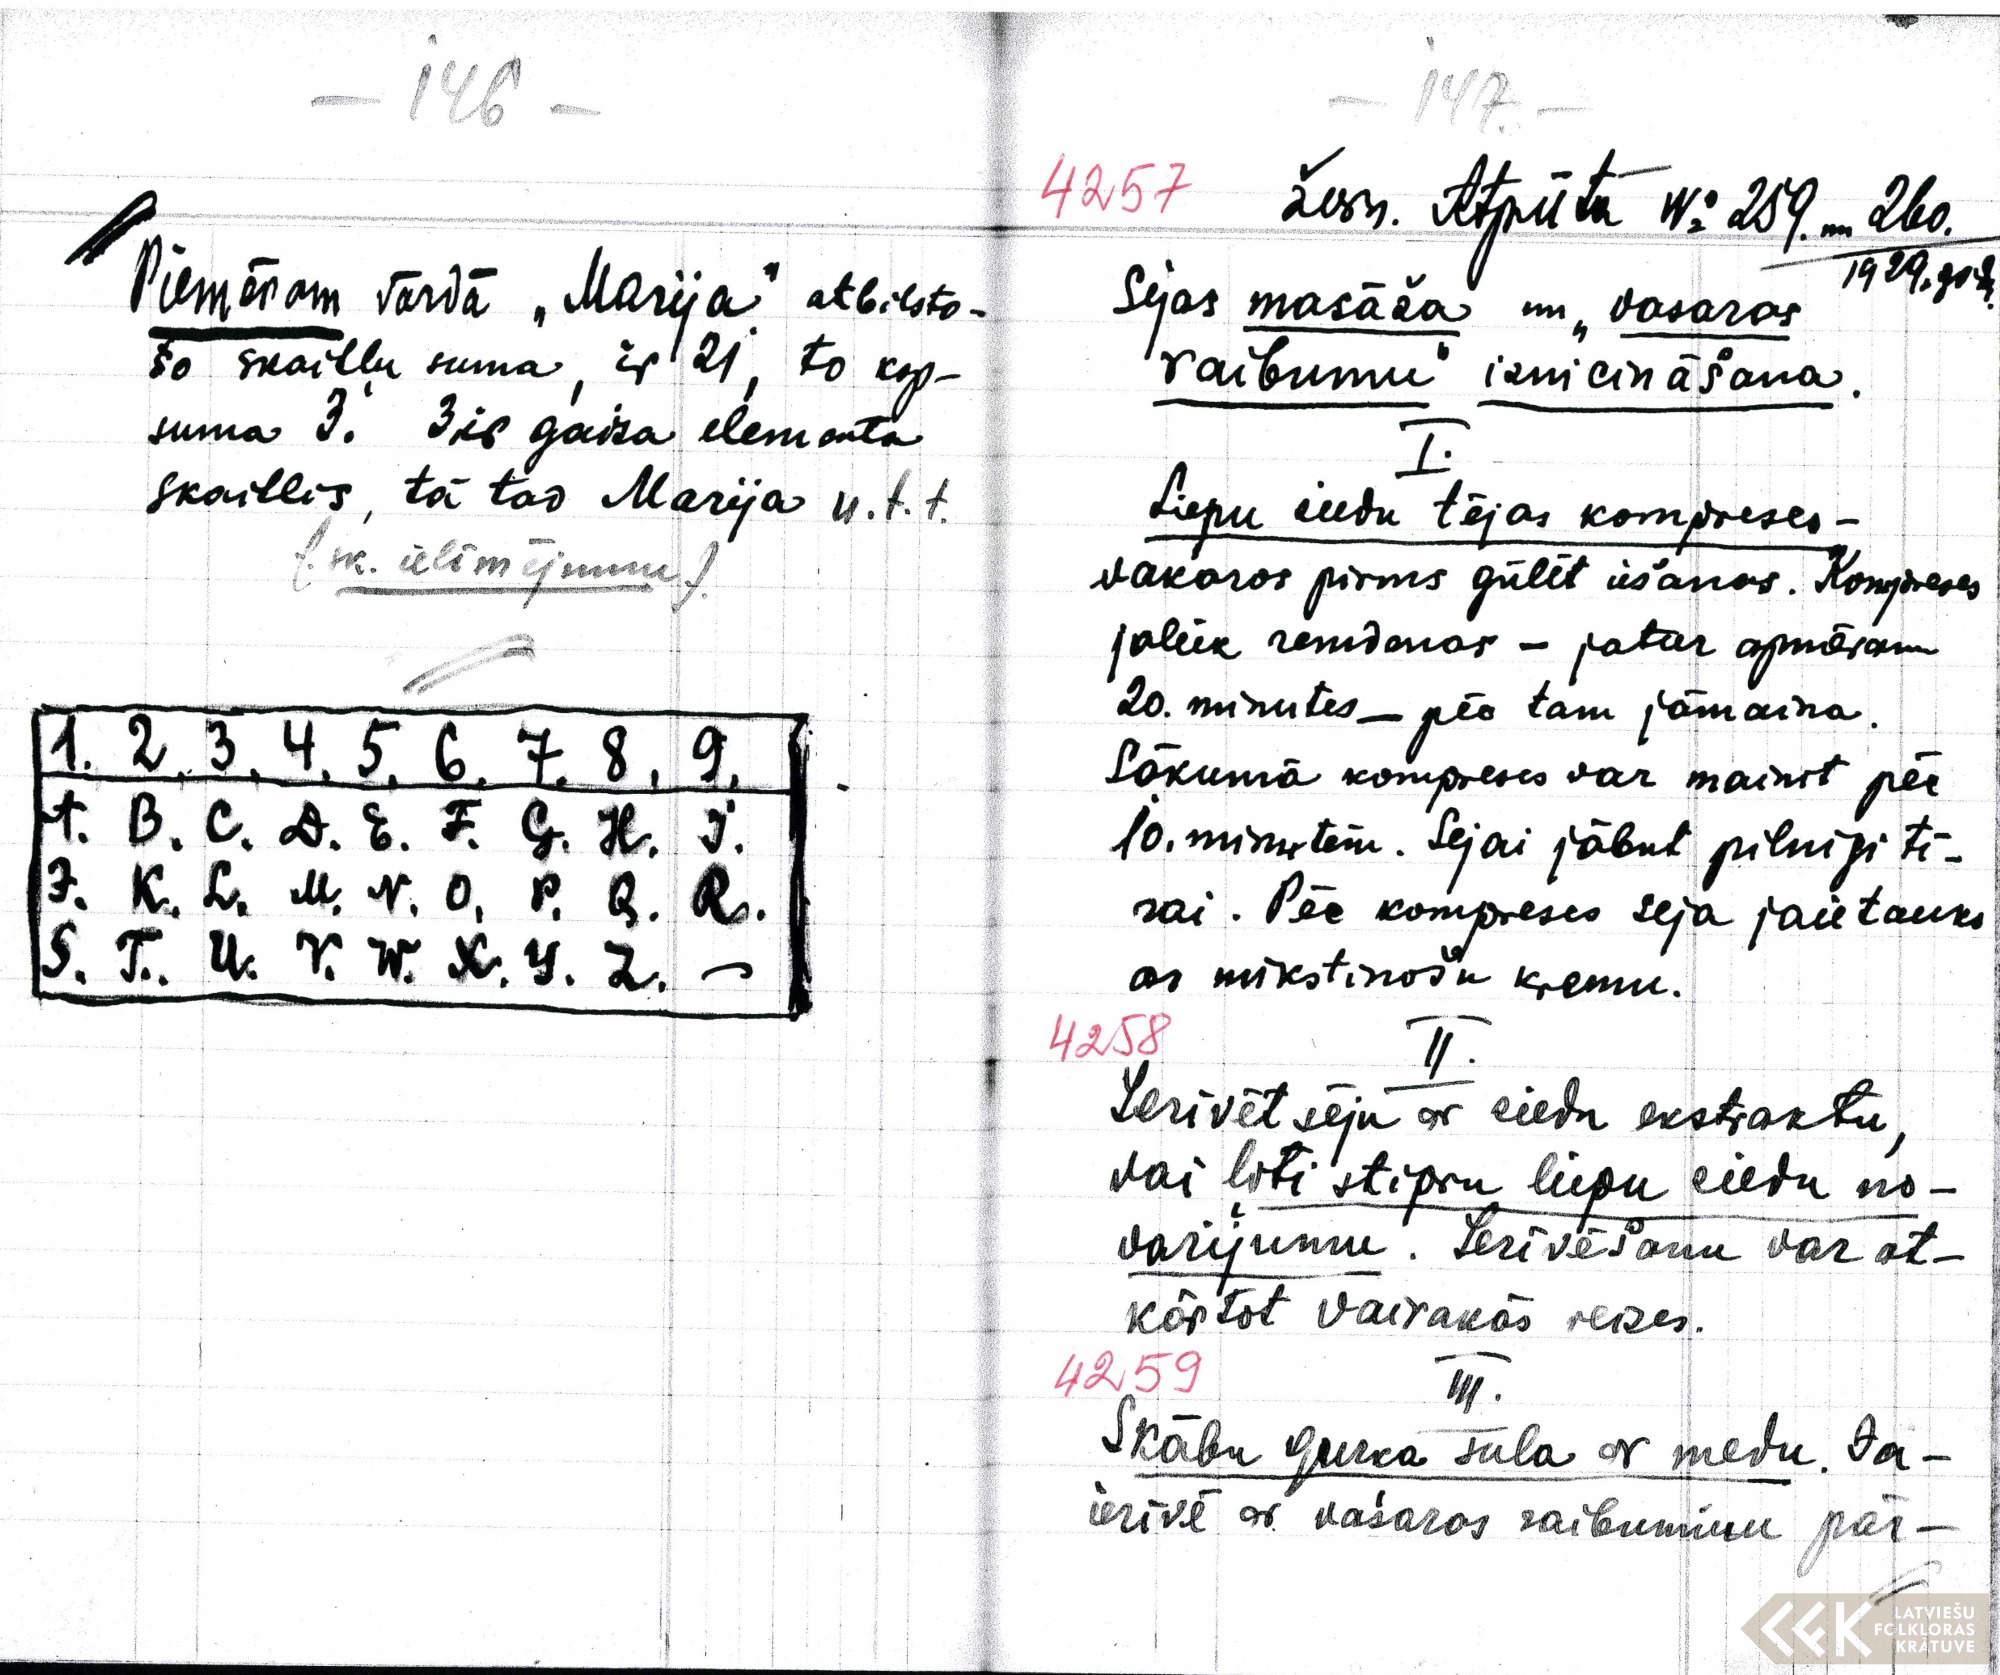 — 146 —
Piemēram vārdā „Marija" atbilsto-
šo skaitļu suma, ir 21, to kop-
suma 3. 3 ir gaisa elementa
skaitlis, tā tad Marija u.t.t.
(sk. ielīmējumu).
1. 2. 3. 4. 5. 6. 7. 8. 9.
A. B. C. D. E. F. G. H. I.
J. K. L. M. N. O. P. Q. R.
S. T. U. V. W. X. Y. Z. —
— 147. —
4257 Žurn. Atpūta № 259. un 260.
1929. gadā.
Sejas masāža un „vasaras
raibumu" iznicināšana.
I.
Liepu ziedu tējas kompreses —
vakaros pirms gūlēt iešanas. Kompreses
jaliek remdenas — jatur apmēram
20. minutes — pēc tam jāmaina.
Sākumā kompreses var mainīt pēc
10. minutēm. Sejai jābut pilnīgi tī-
rai. Pēc kompreses seja jaietauko
ar mīkstinošu krēmu.
4258 II.
Ierīvēt seju ar ziedu ekstraktu,
vai ļoti stipru liepu ziedu no-
vārijumu. Ierīvēšanu var at-
kārtot vairakās reizes.
4259 III.
Skābu gurķa sula ar medu. Ja-
ierīvē ar vasaras raibumiem pār-
LATVIEŠU
FOLKLORAS
KRĀTUVE